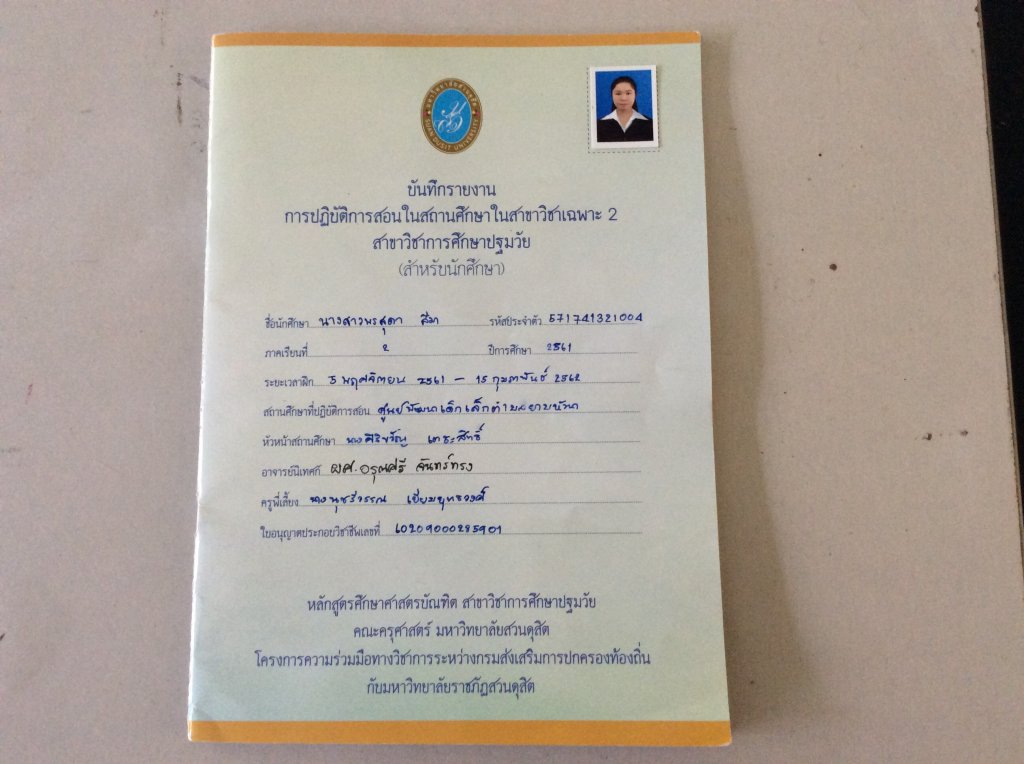 มหาวิทยาลัยสวนดุสิต
SUAN DUSIT UNIVERSITY
บันทึกรายงาน
การปฏิบัติการสอนในสถานศึกษาในสาขาวิชาเฉพาะ 2
สาขาวิชาการศึกษาปฐมวัย
(สำหรับนักศึกษา)
ชื่อนักศึกษา นางสาวพรสุดา สีมา รหัสประจำตัว 571741321004
ภาคเรียนที่ 2 ปีการศึกษา 2561
ระยะเวลาฝึก 5 พฤศจิกายน 2561 - 15 กุมภาพันธ์ 2562
สถานศึกษาที่ปฏิบัติการสอน ศูนย์พัฒนาเด็กเล็กตำบล
หัวหน้าสถานศึกษา นาง เตชะสิทธิ์
อาจารย์นิเทศก์ ผศ.อรุณศรี จันทร์ทรง
ครูพี่เลี้ยง นางนุชรีวรรณ
ใบอนุญาตประกอบวิชาชีพเลขที่ 60209000285901
หลักสูตรศึกษาศาสตรบัณฑิต สาขาวิชาการศึกษาปฐมวัย
คณะครุศาสตร์ มหาวิทยาลัยสวนดุสิต
โครงการความร่วมมือทางวิชาการระหว่างกรมส่งเสริมการปกครองท้องถิ่น
กับมหาวิทยาลัยราชภัฏสวนดุสิต